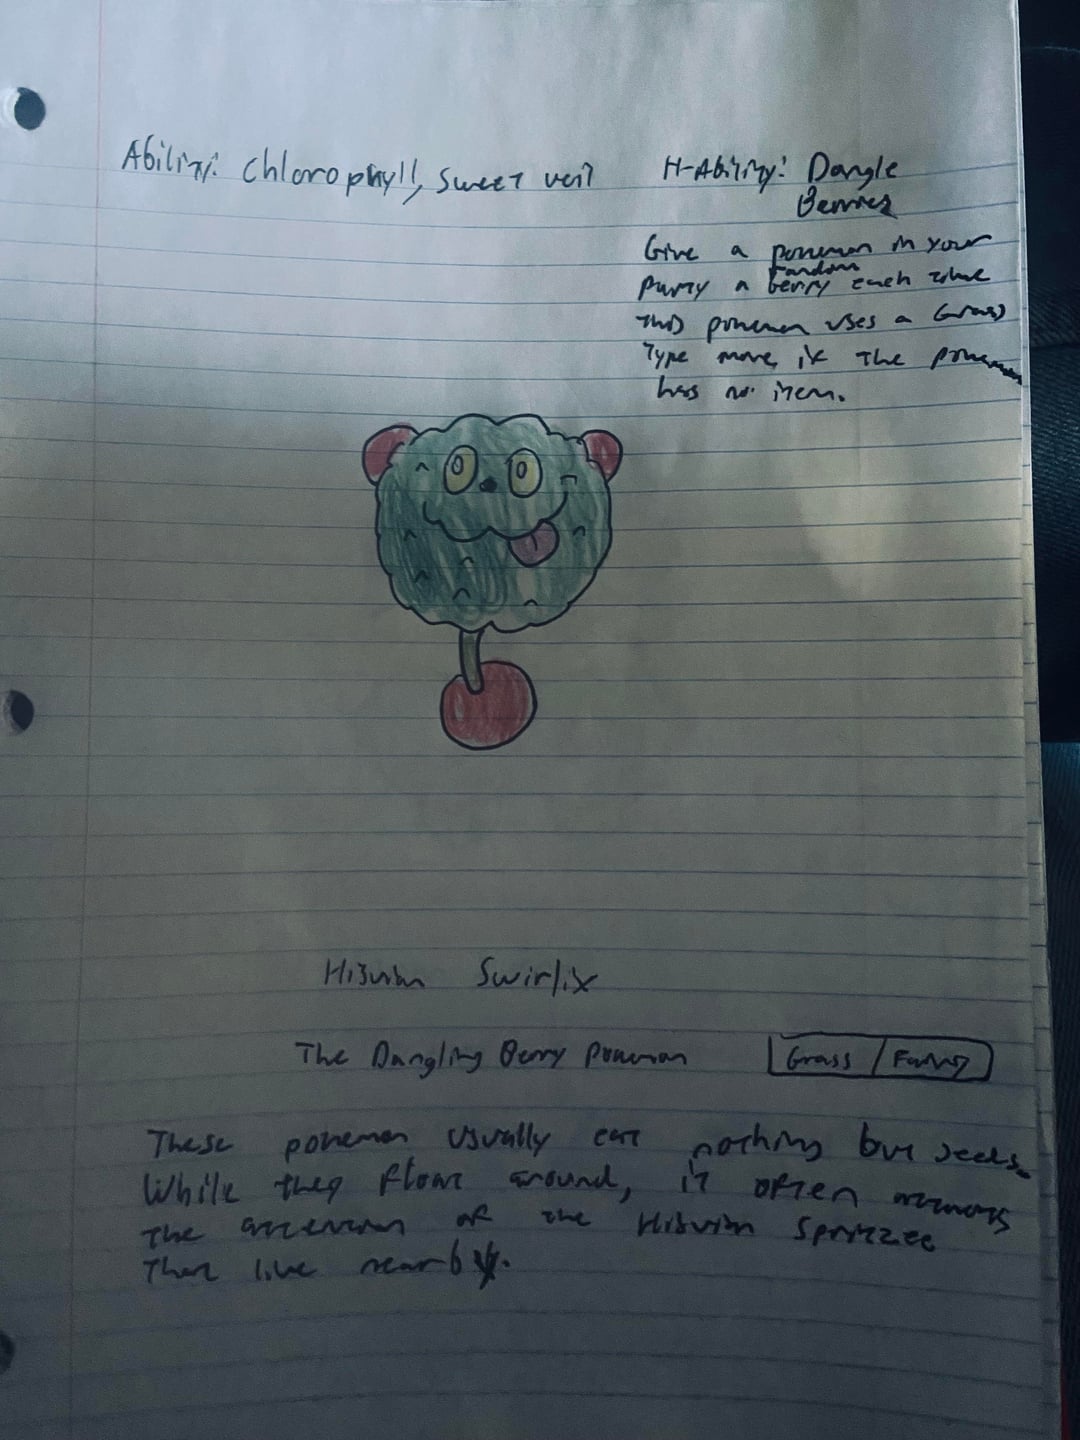 Ability: Chlorophyll, Sweet veil
H-Ability: Dangle
Berries
Give a pokemon in your
party a random berry each time
this pokemon uses a Grass
Type move, if the pokemon
has no item.
Hisuian Swirlix
The Dangling Berry Pokemon
Grass / Fairy
These pokemon usually eat nothing but seeds.
While they float around, it often attracts
the attention of the Hisuian Spritzee
that live nearby.